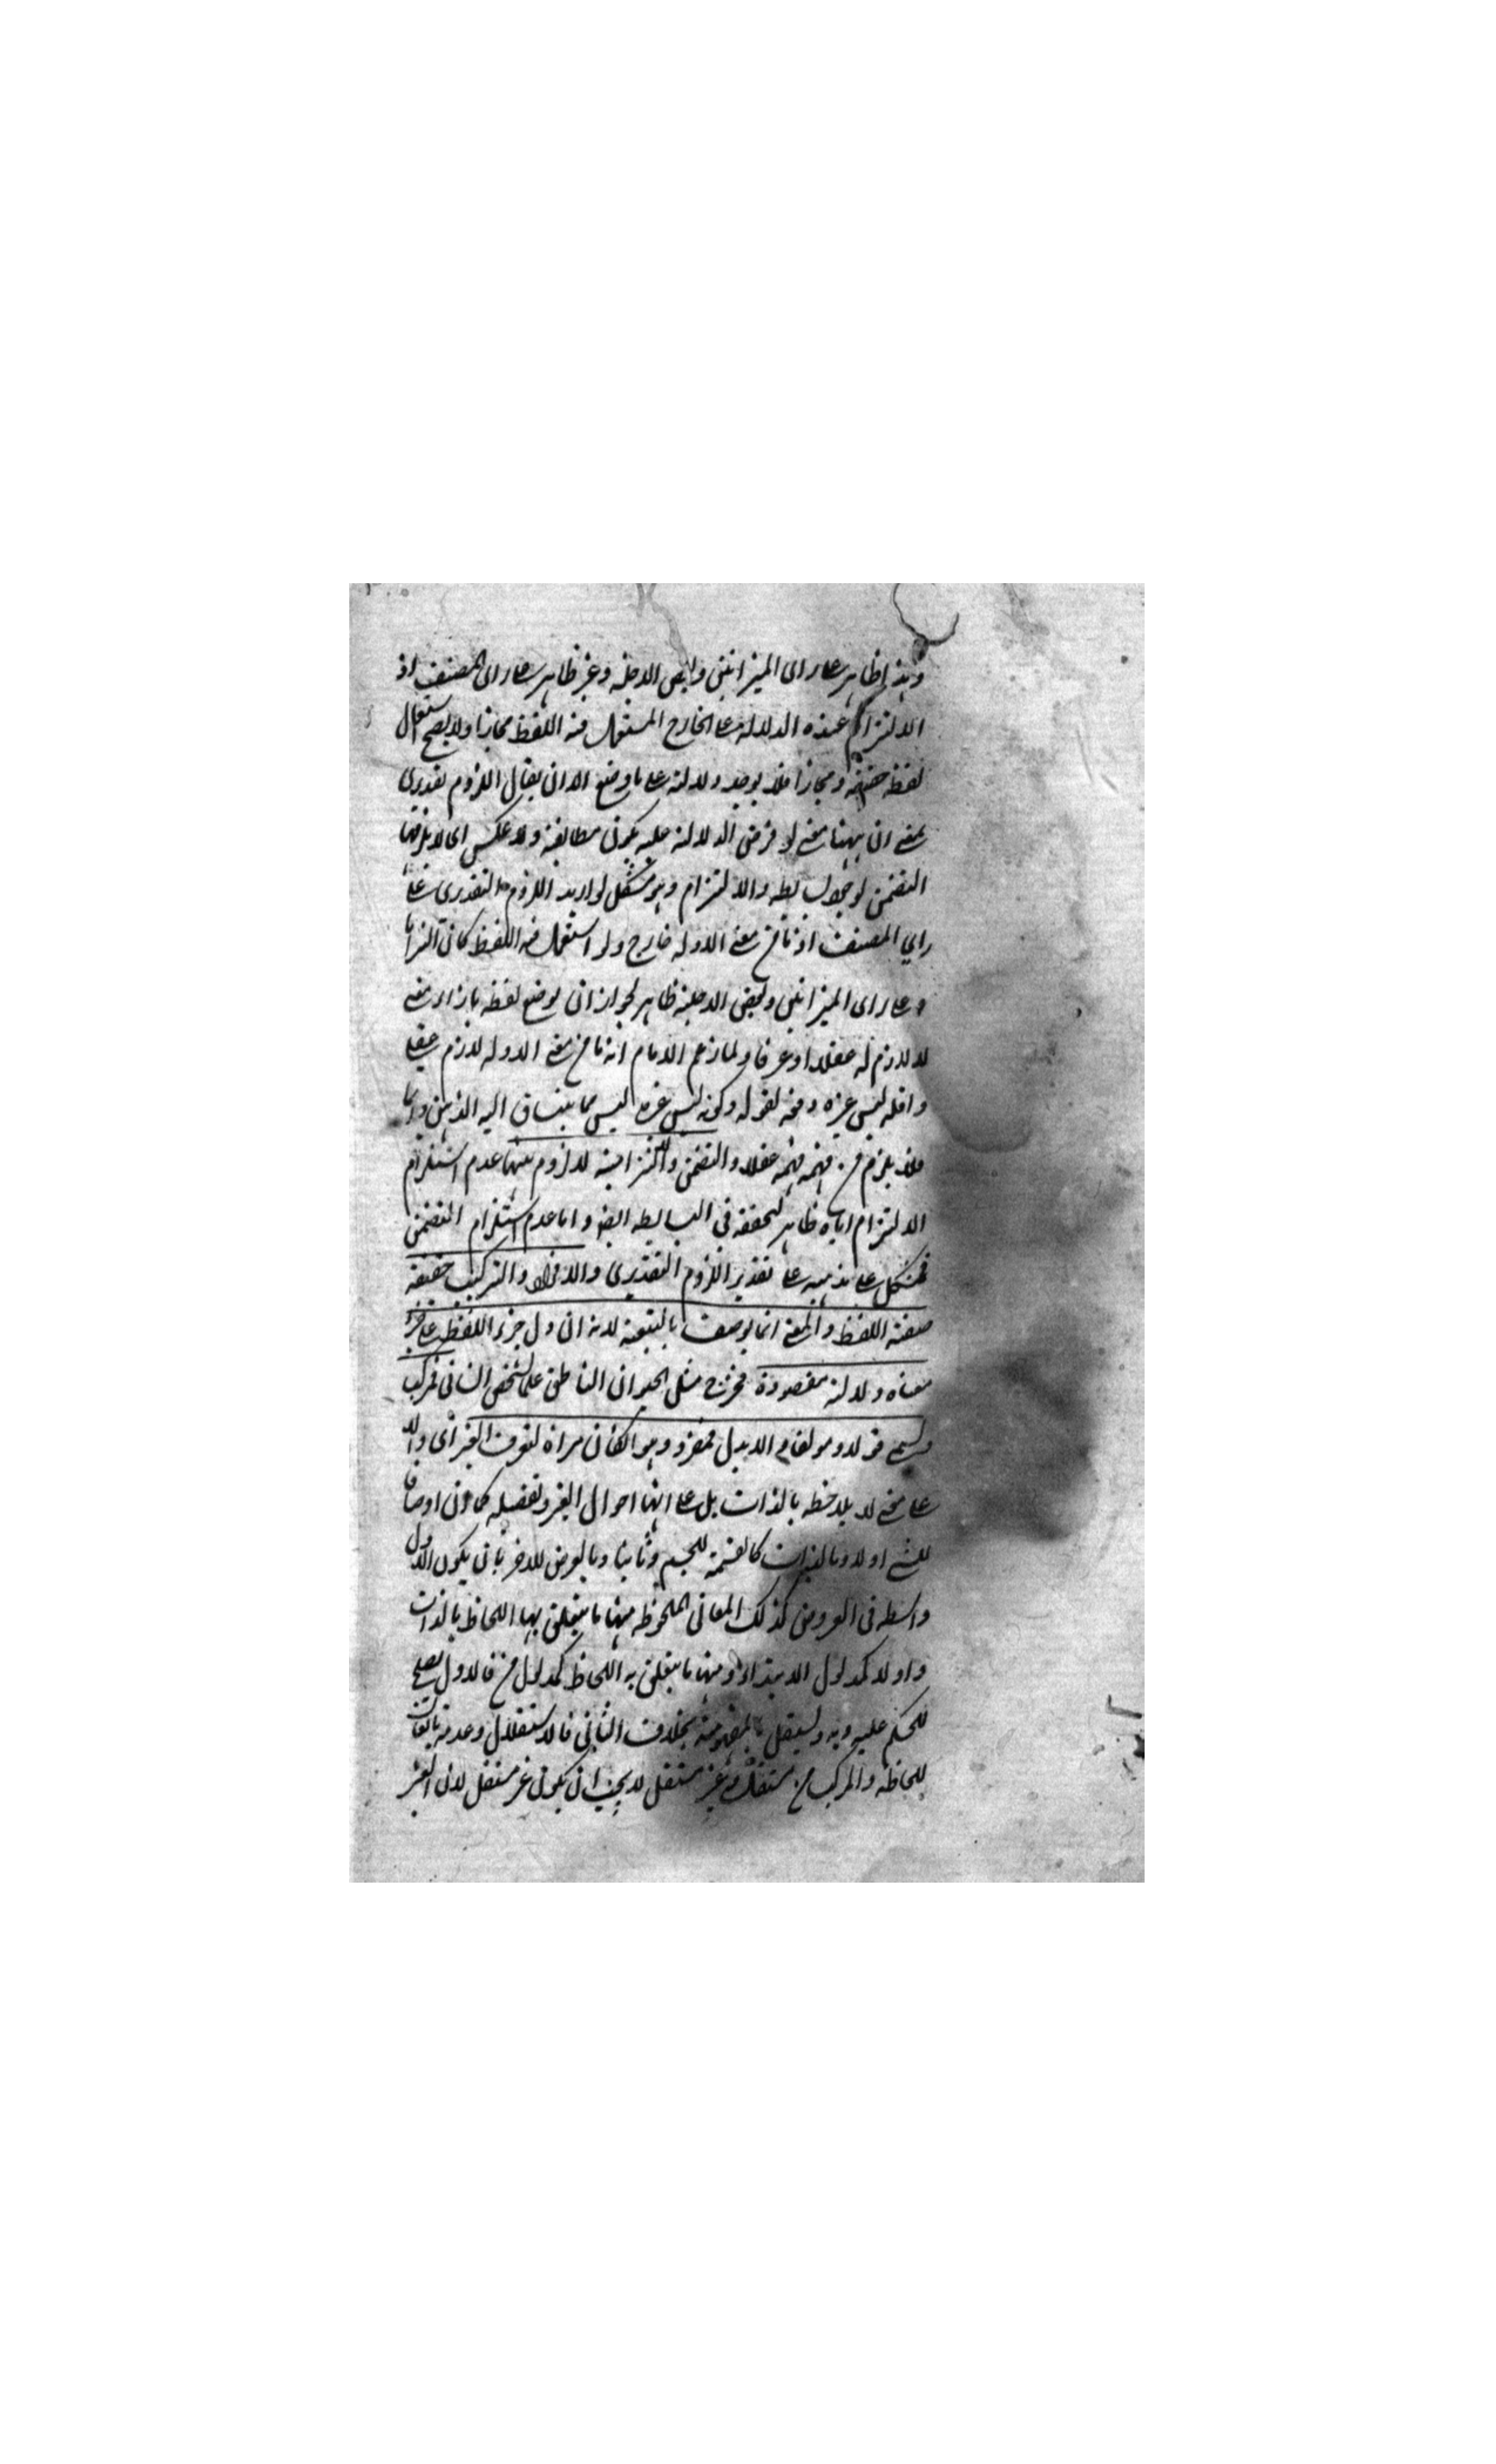 وهذا ظاهر على راى الميزانيين وبعض الاجلة وغير ظاهر على راى المصنف اذ
الالتزام عنده الدلالة على الخارج المستعمل فيه اللفظ مجازا ولا يصح استعمال
لفظ حقيقة ومجازا فلا يوجد دلالة على ما وضع الا ان يقال اللزوم تقديرى
بمعنى ان ههنا معنى لو فرض الدلالة عليه يكون مطابقة ولا عكس اى لا يلزمها
التضمن لوجود البسايط والالتزام وهو مشكل لو اريد اللزوم التقديرى على
راي المصنف اذ ما من معنى الا وله خارج ولو استعمل فيه اللفظ كان التزاما
وعلى راى الميزانيين وبعض الاجلة ظاهر لجواز ان يوضع لفظ بازاء معنى
لا لازم له عقلا او عرفا ولما زعم الامام انه ما من معنى الا وله لازم عقلى
واقله ليس غيره دفعه بقوله وكونه ليس غيره ليس مما ينساق اليه الذهن دائما
فلا يلزم من فهمه فهمه عقلا والتضمن والالتزامية لا لزوم بينهما عدم استلزام
الالتزام اياه ظاهر لتحققه فى البسايط ايضا واما عدم استلزام التضمن
فمشكل على مذهبه على تقدير اللزوم التقديرى والافراد والتركيب حقيقة
صفة اللفظ والمعنى انما يوصف بالتبعية لانه ان دل جزء اللفظ على جزء
معناه دلالة مقصودة فخرج مثل الحيوان الناطق علما لشخص انسانى فمركب
ويسمى قولا ومولفا والا بدل فمفرد وهو ان كان مراة لتعرف الغير اى دالا
على معنى لا يلاحظ بالذات بل على انها احوال الغير وتفصيله كما ان اوصافا
للشئ اولا وبالذات كالقسمة للجسم وثانيا وبالعرض للاخر بان يكون الاول
واسطة فى العروض كذلك المعانى الملحوظة منها ما يتعلق بها اللحاظ بالذات
واولا كمدلول الابتداء ومنها ما يتعلق به اللحاظ كمدلول من فالاول يصلح
للحكم عليه وبه ويستقل بالمفهومية بخلاف الثانى فالاستقلال وعدمه تابعان
للحاظ والمركب من مستقل وغير مستقل لا يجب ان يكون غير مستقل لان الغير